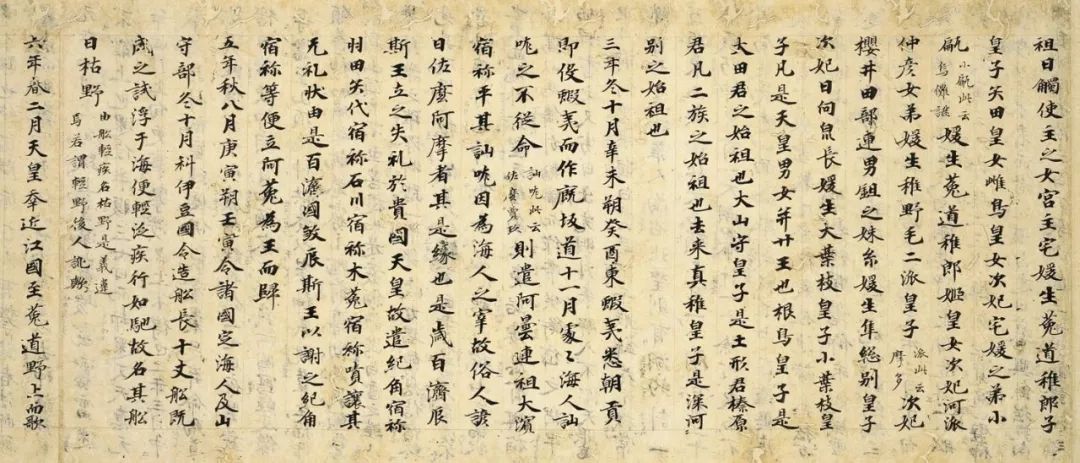 祖日觸使主之女宮主宅媛生菟道稚郎子
皇子矢田皇女雌鳥皇女次妃宅媛之弟小
甂小甂此云烏儺謎媛生菟道稚郎姬皇女次妃河派
仲彦女弟媛生稚野毛二派皇子派此云摩多次妃
櫻井田部連男鉏之妹糸媛生隼総別皇子
次妃日向泉長媛生大葉枝皇子小葉枝皇
子凡是天皇男女并廿王也根鳥皇子是
大田君之始祖也大山守皇子是土形君榛原
君凡二族之始祖也去来真稚皇子是深河
別之始祖也
三年冬十月辛未朔癸酉東蝦夷悉朝貢
即伇蝦夷而作厩坂道十一月處々海人訕
哤之不従命訕哤此云佐麼賣玖則遣阿曇連祖大濱
宿祢平其訕哤因為海人之宰故俗人諺
曰佐麼阿摩者其是縁也是歳百濟辰
斯王立之失礼於貴國天皇故遣紀角宿祢
羽田矢代宿祢石川宿祢木菟宿祢嘖讓其
无礼状由是百濟國敦辰斯王以謝之紀角
宿祢等便立阿菟為王而歸
五年秋八月庚寅朔壬寅令諸國定海人及山
守部冬十月科伊豆國令造舩長十丈舩既
成之試浮于海便輕泛疾行如馳故名其舩
曰枯野由舩輕疾名枯野是義違焉若謂輕野後人訛歟
六年春二月天皇幸近江國至菟道野上而歌